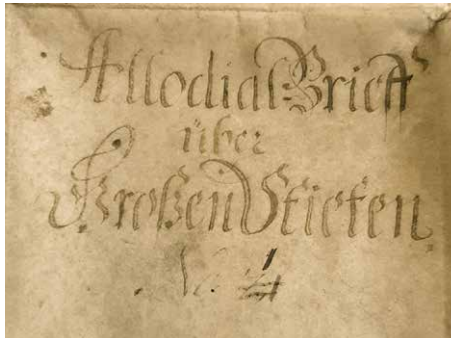 Allodial Brieff
über
Großen Stieten.
No. 4